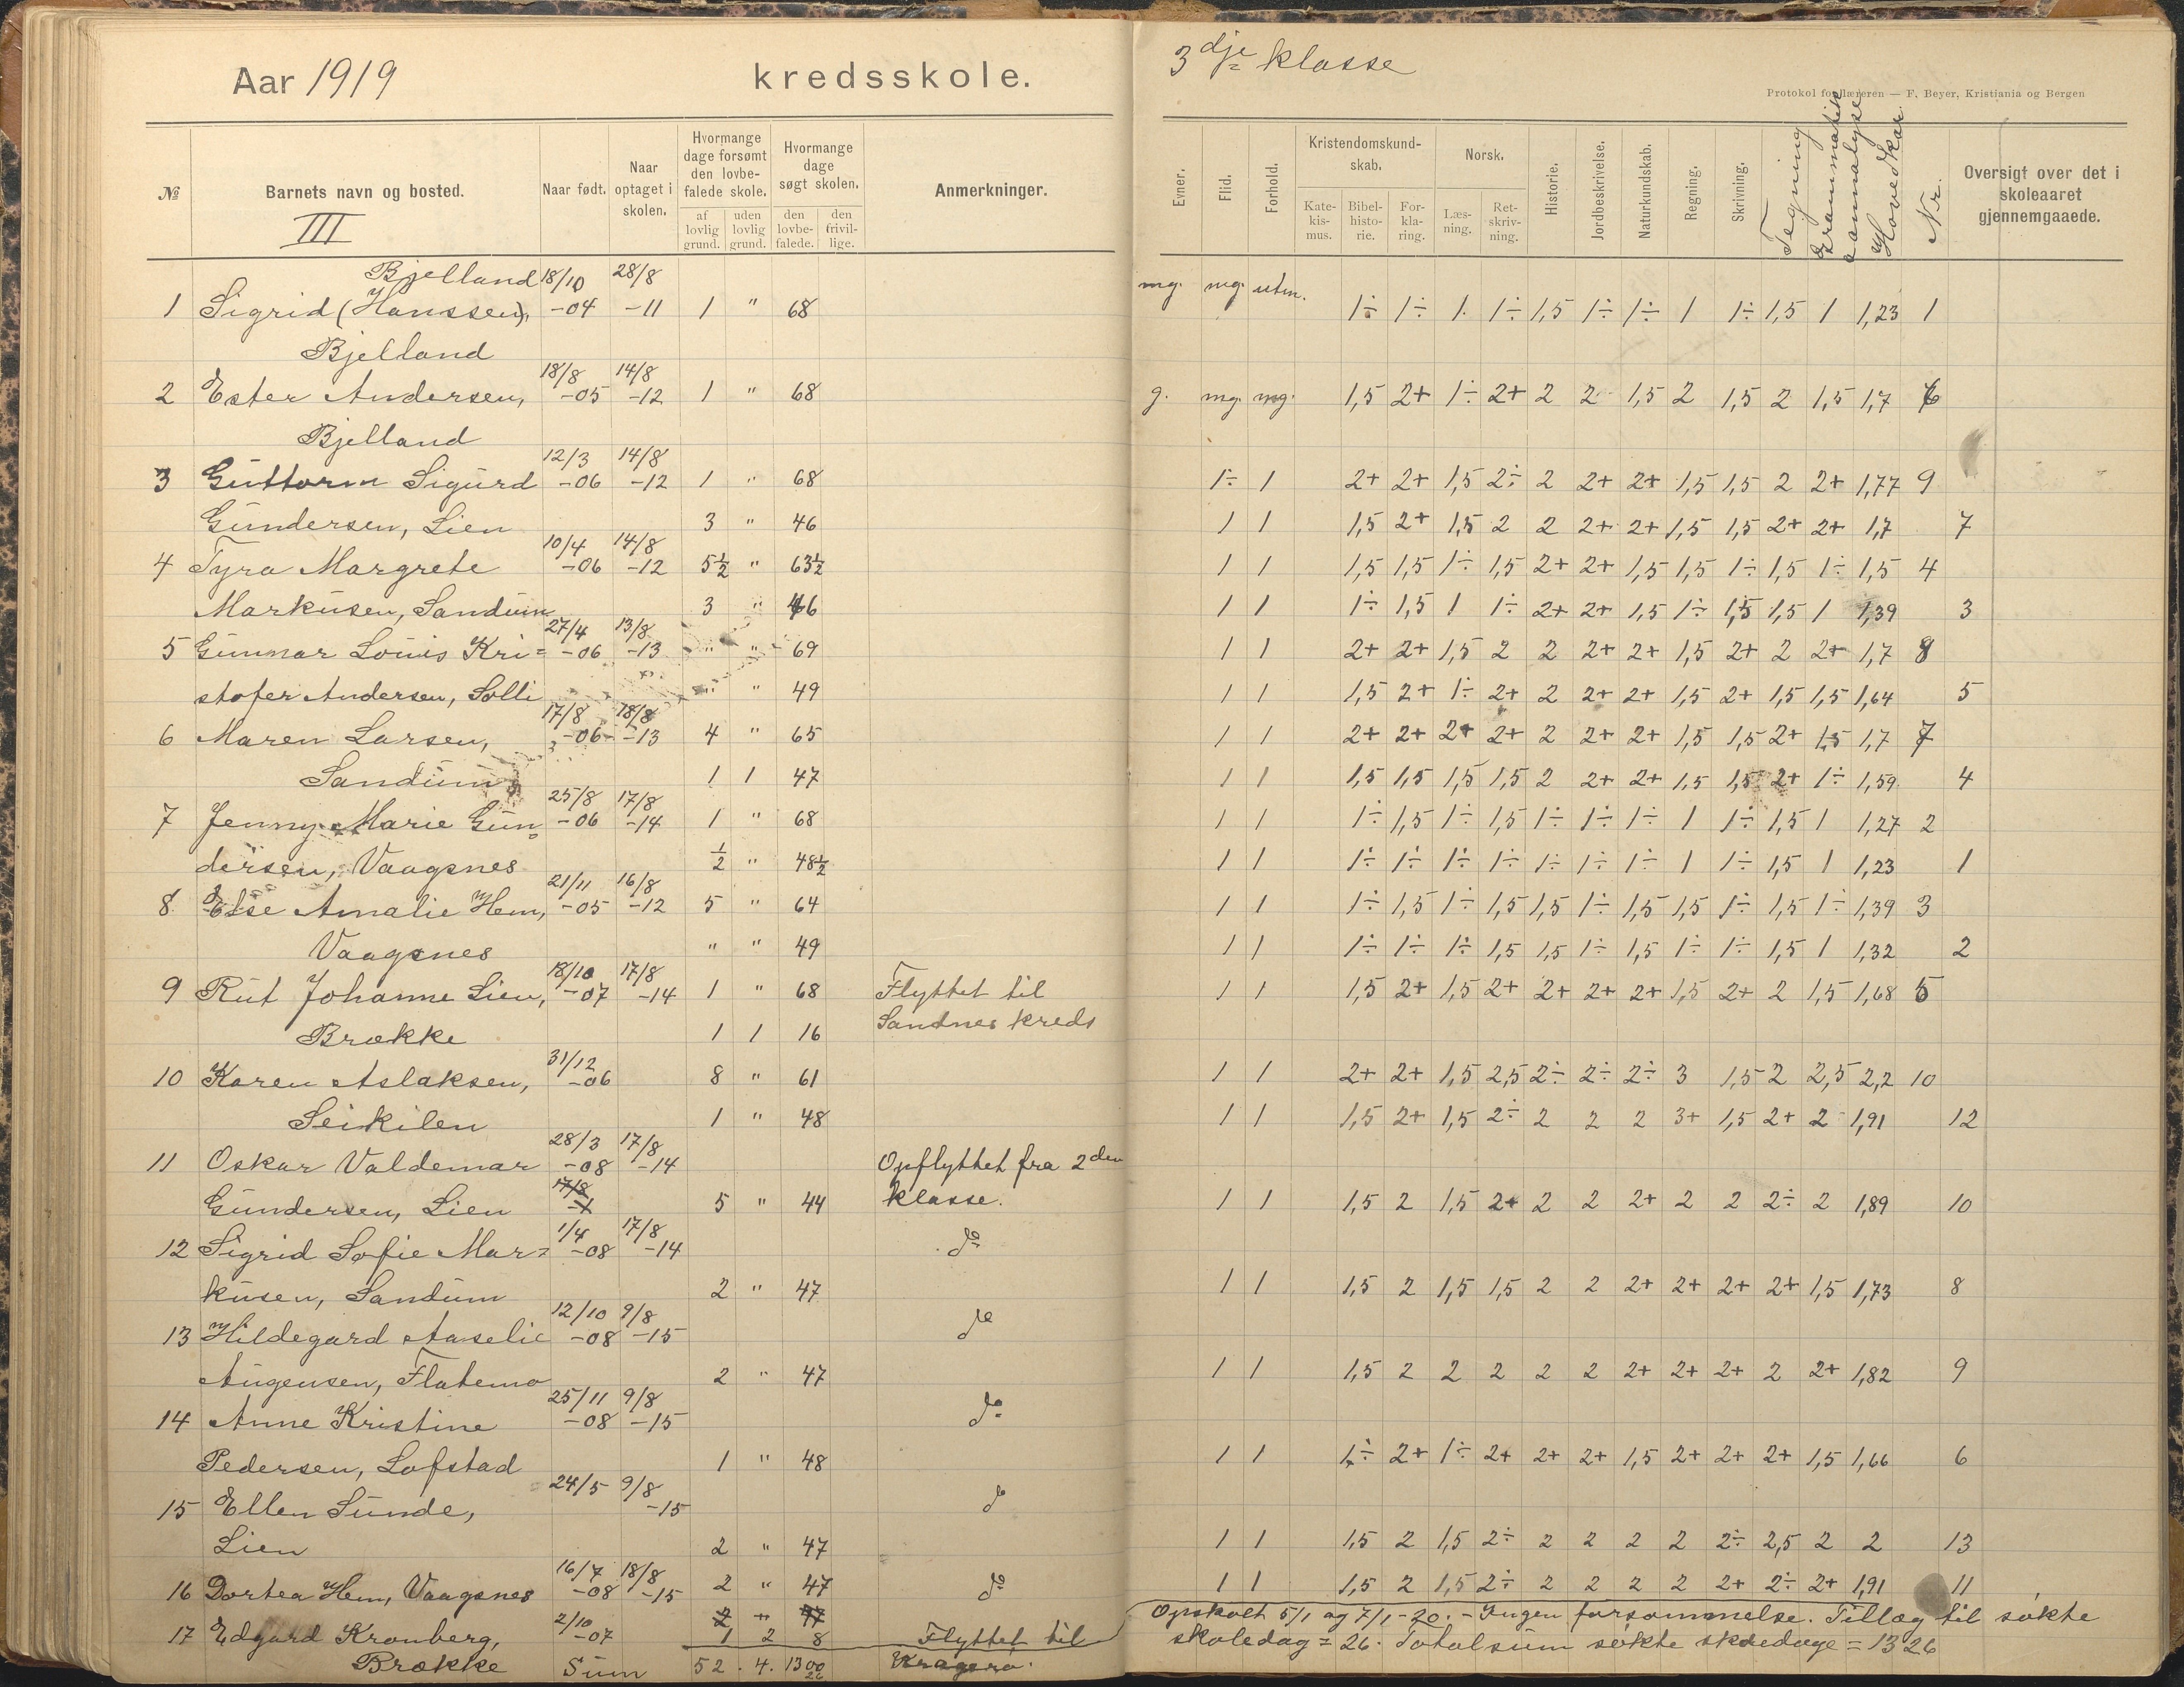 Aar 1919 kredsskole.
№ Barnets navn og bosted. Naar født. Naar optaget i skolen. Hvormange dage forsømt den lovbefalede skole. af lovlig grund. uden lovlig grund. Hvormange dage søgt skolen. den lovbefalede. den frivillige. Anmerkninger.
III
Bjelland 18/10 28/8
1 Sigrid (Hanssen), -04 -11 1 " 68
Bjelland
18/8 14/8
2 Ester Andersen, -05 -12 1 " 68
Bjelland
12/3 14/8
3 Guttorm Sigurd -06 -12 1 " 68
Gundersen, Lien 3 " 46
10/4 14/8
4 Tyra Margrete -06 -12 5½ " 63½
Markusen, Sandum 3 " 46
27/4 13/8
5 Gunnar Louis Kri= -06 -13 " " 69
stofer Andersen, Solli " " 49
17/8 18/8
6 Maren Larsen, -06 -13 4 " 65
Sandum 1 1 47
25/8 17/8
7 Jenny Marie Gun= -06 -14 1 " 68
dersen, Vaagsnes ½ " 48½
21/11 16/8
8 Else Amalie Hem, -05 -12 5 " 64
Vaagsnes " " 49
18/10 17/8
9 Rut Johanne Lien, -07 -14 1 " 68 Flyttet til
Brække 1 1 16 Sandnes kreds
31/12
10 Karen Aslaksen, -06 8 " 61
Seikilen 1 " 48
28/3 17/8
11 Oskar Valdemar -08 -14 Opflyttet fra 2den
17/8
Gundersen, Lien 5 " 44 klasse.
1/4 17/8
12 Sigrid Sofie Mar= -08 -14 do
kusen, Sandum 2 " 47
12/10 9/8
13 Hildegard Aaselie -08 -15 do
Augensen, Flatemo 2 " 47
25/11 9/8
14 Anne Kristine -08 -15 do
Pedersen, Lofstad 1 " 48
24/5 9/8
15 Ellen Sunde, -15 do
Lien 2 " 47
16/7 18/8
16 Dortea Hem, Vaagsnes -08 -15 2 " 47 do
2/10 2 " 47
17 Edgard Kronberg, -07 1 2 8 Flyttet til
Brække Sum 52. 4. 1300 26 Kragerø.
3dje klasse
Protokol for læreren — F. Beyer, Kristiania og Bergen
Evner. Flid. Forhold. Kristendomskundskab. Katekismus. Bibelhistorie. Forklaring. Norsk. Læsning. Retskrivning. Historie. Jordbeskrivelse. Naturkundskab. Regning. Skrivning. Tegning Grammatik Hovedkar. Nr. Oversigt over det i skoleaaret gjennemgaaede.
mg. mg. utm. 1÷ 1÷ 1. 1÷ 1,5 1÷ 1÷ 1 1÷ 1,5 1 1,23 1
g. mg. mg. 1,5 2+ 1÷ 2+ 2 2 1,5 2 1,5 2 1,5 1,7 6
1÷ 1 2+ 2+ 1,5 2÷ 2 2+ 2+ 1,5 1,5 2 2+ 1,77 9
1 1 1,5 2+ 1,5 2 2 2+ 2+ 1,5 1,5 2+ 2+ 1,7 7
1 1 1,5 1,5 1÷ 1,5 2+ 2+ 1,5 1,5 1÷ 1,5 1÷ 1,5 4
1 1 1÷ 1,5 1 1÷ 2+ 2+ 1,5 1÷ 1,5 1,5 1 1,39 3
1 1 2+ 2+ 1,5 2 2 2+ 2+ 1,5 2+ 2 2+ 1,7 8
1 1 1,5 2+ 1÷ 2+ 2 2+ 2+ 1,5 2+ 1,5 1,5 1,64 5
1 1 2+ 2+ 2+ 2+ 2 2+ 2+ 1,5 1,5 2+ 1,5 1,7 7
1 1 1,5 1,5 1,5 1,5 2 2+ 2+ 1,5 1,5 2+ 1÷ 1,59 4
1 1 1÷ 1,5 1÷ 1,5 1÷ 1÷ 1÷ 1 1÷ 1,5 1 1,27 2
1 1 1÷ 1÷ 1÷ 1÷ 1÷ 1÷ 1÷ 1 1÷ 1,5 1 1,23 1
1 1 1÷ 1,5 1÷ 1,5 1,5 1÷ 1,5 1,5 1÷ 1,5 1÷ 1,39 3
1 1 1÷ 1÷ 1÷ 1,5 1,5 1÷ 1,5 1÷ 1÷ 1,5 1 1,32 2
1 1 1,5 2+ 1,5 2+ 2+ 2+ 2+ 1,5 2+ 2 1,5 1,68 5
1 1 2+ 2+ 1,5 2,5 2÷ 2÷ 2÷ 3 1,5 2 2,5 2,2 10
1 1 1,5 2+ 1,5 2÷ 2 2 2 3+ 1,5 2+ 2 1,91 12
1 1 1,5 2 1,5 2+ 2 2 2+ 2 2 2÷ 2 1,89 10
1 1 1,5 2 1,5 1,5 2 2 2+ 2+ 2+ 2+ 1,5 1,73 8
1 1 1,5 2 2 2 2 2 2+ 2+ 2+ 2 2+ 1,82 9
1 1 1÷ 2+ 1÷ 2+ 2+ 2+ 1,5 2+ 2+ 2+ 1,5 1,66 6
1 1 1,5 2 1,5 2÷ 2 2 2 2 2÷ 2,5 2 2 13
1 1 1,5 2 1,5 2÷ 2 2 2 2 2+ 2÷ 2+ 1,91 11
Opskolt 5/1 og 7/1-20. - Ingen forsømmelse. Tillæg til søkte
skoledag = 26. Totalsum søkte skoledage = 1326